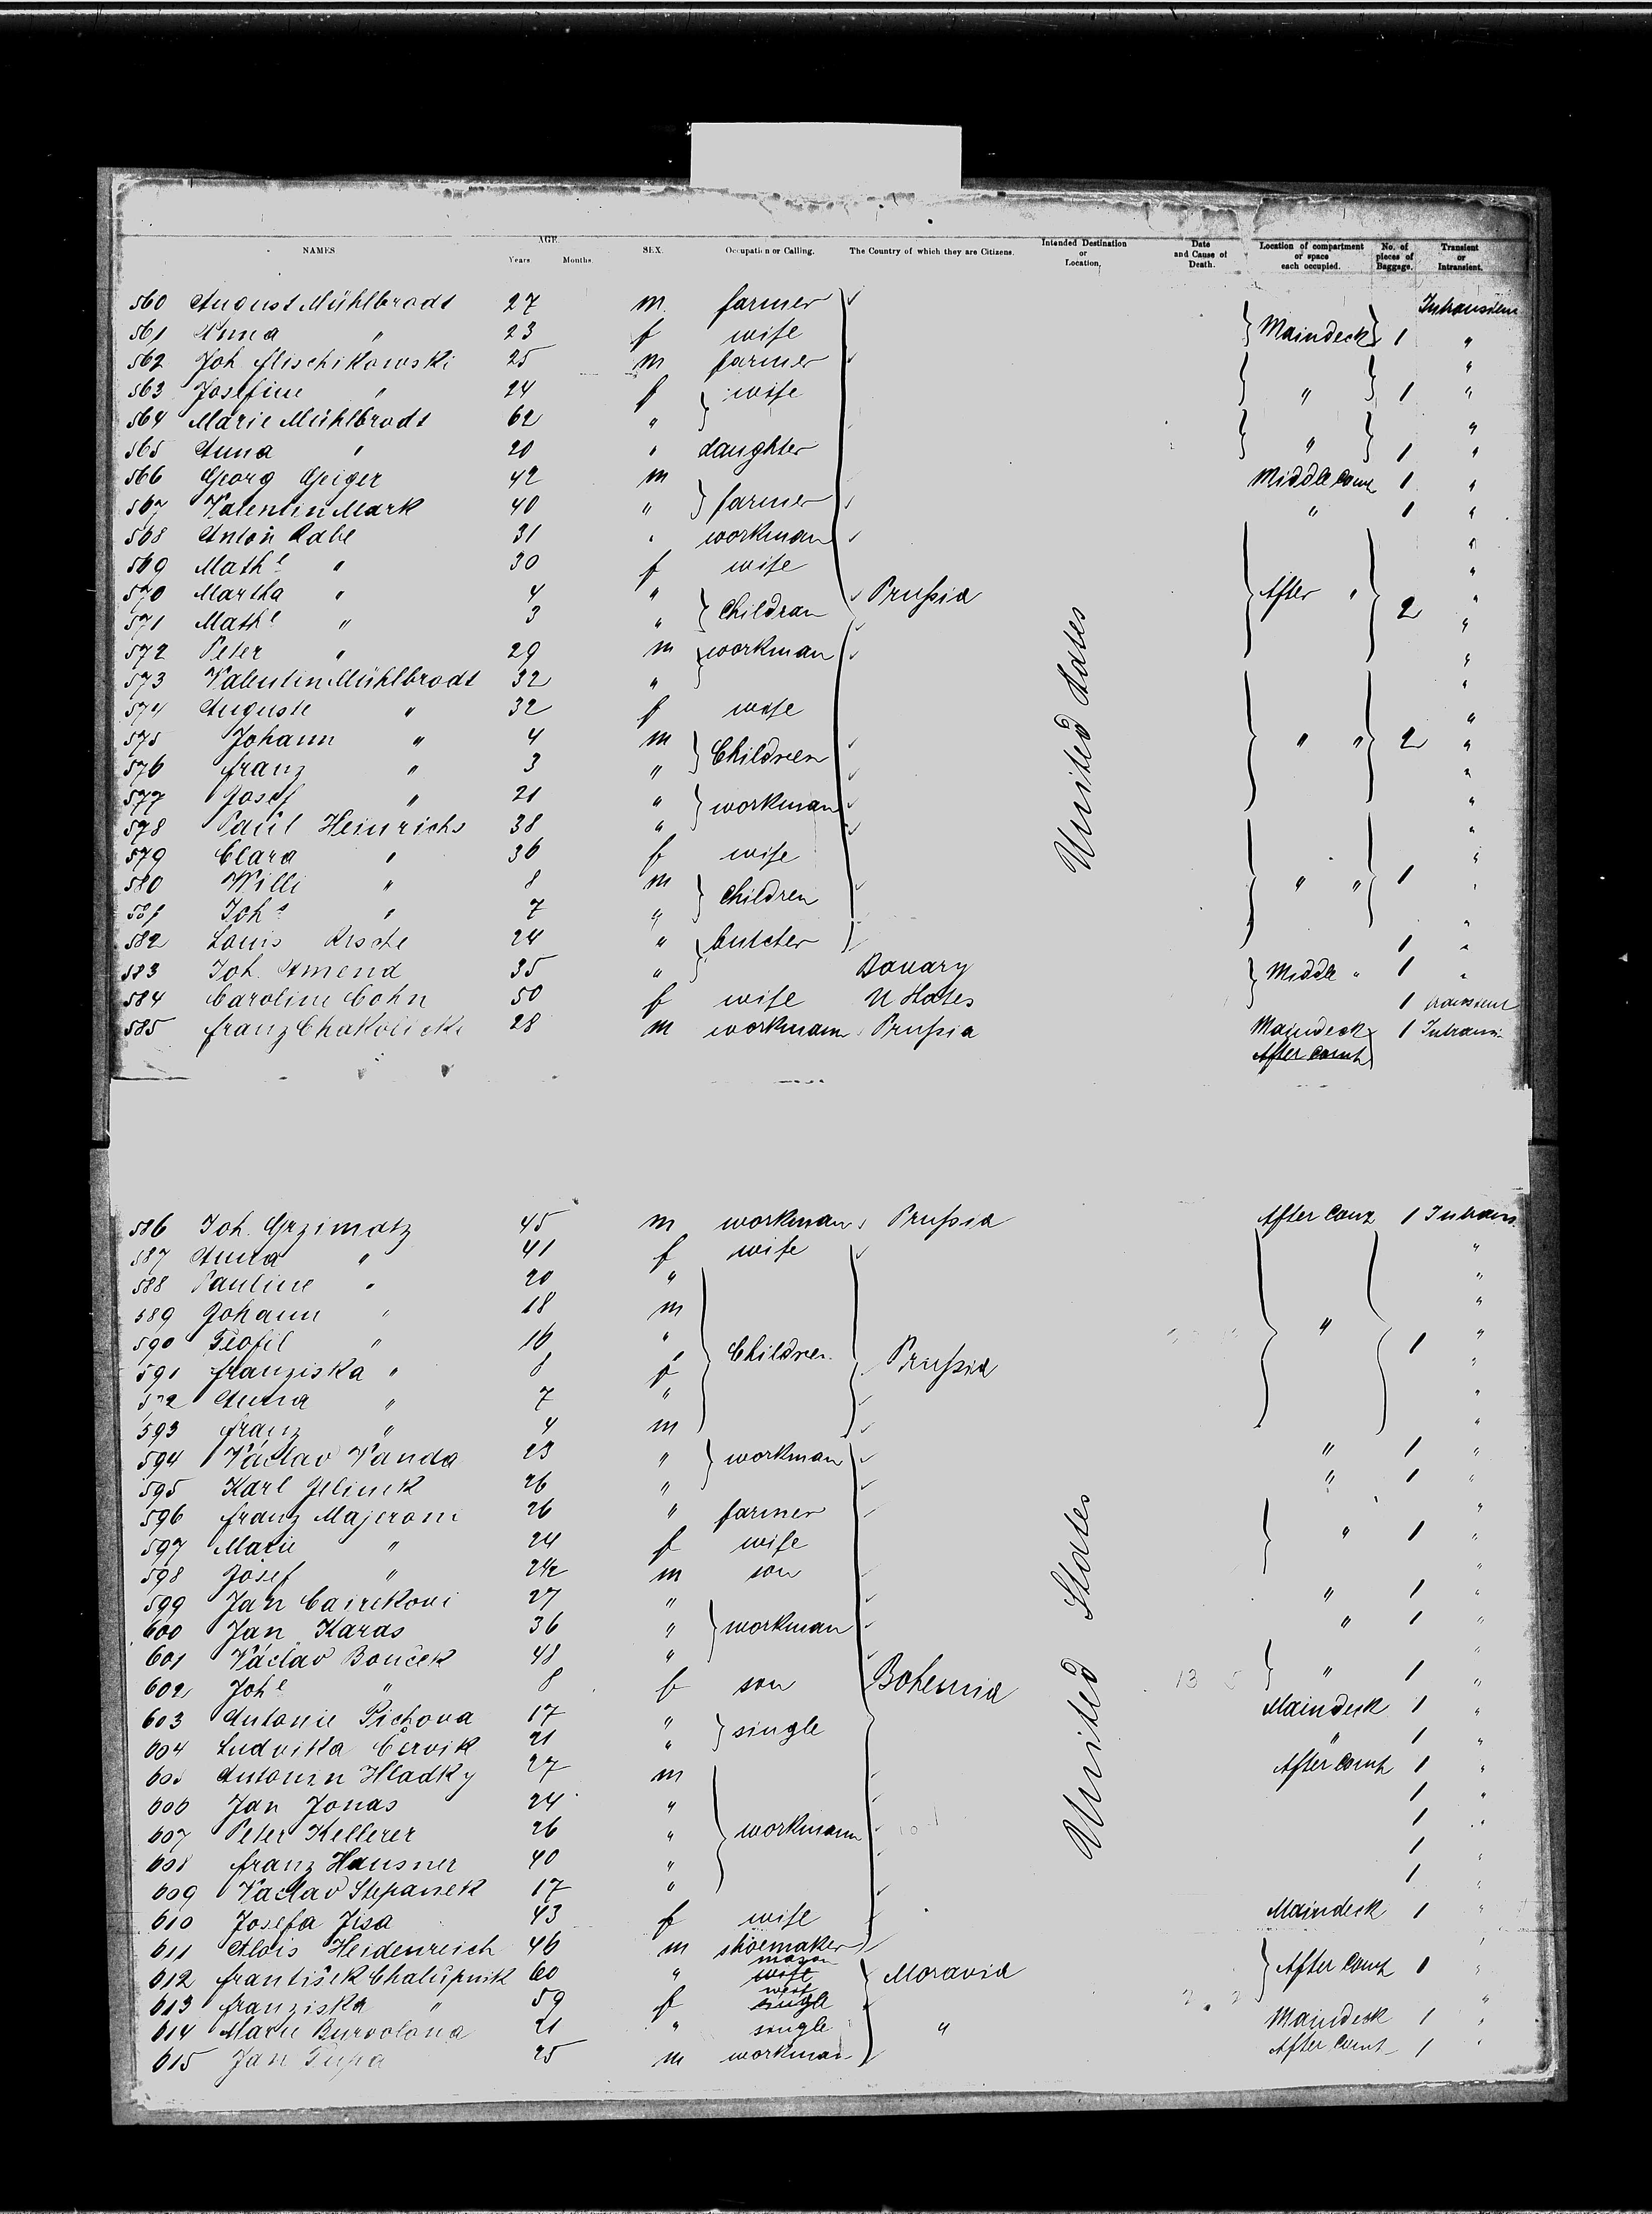 NAMES AGE Years Months. SEX. Occupation or Calling. The Country of which they are Citizens. Intended Destination or Location. Date and Cause of Death. Location of compartment or space each occupied. No. of pieces of Baggage. Transient or Intransient.
560 August Mühlbradt 27 m. farmer
561 Anna " 23 f wife Maindeck 1 "
562 Joh. Mischikowski 25 m farmer "
563 Josefine " 24 f wife " 1 "
564 Marie Mühlbradt 62 " "
565 Anna " 20 " daughter " 1 "
566 Georg Geiger 42 m Middle 1 "
567 Valentin Mark 40 " farmer " 1 "
568 Anton Rabe 31 " workman "
569 Mathe " 30 f wife "
570 Martha " 4 " Prußia After " "
571 Mathe " 3 " Childran 2 "
572 Peter " 29 m workman "
573 Valentin Mühlbradt 32 " "
574 Auguste " 32 f wife "
575 Johann " 4 m Children " " 2 "
576 Franz " 3 " "
577 Josef " 21 " workman "
578 Paul Heinrichs 38 " "
579 Clara " 36 f wife "
580 Willi " 8 m children " " 1 "
581 Johs " 7 "
582 Louis 24 " butcher 1 "
583 Joh. Amend 35 " Bavary Middle " 1 "
584 Caroline Cohn 50 f wife U States 1 transient
585 Franz 28 m workmann Prußia Maindeck 1
After
United States
586 Joh. Grzimatz 45 m workman Prußia After 1 Intrans
587 Anna " 41 f wife "
588 Pauline " 20 " "
589 Johann " 18 m "
590 Teofil " 16 " Children " 1 "
591 Franziska " 8 f Prußia "
592 Anna " 7 " "
593 Franz " 4 m "
594 Václav Vanda 23 " workman " 1 "
595 Karl Jelinek 26 " " 1 "
596 Franz Majeroni 26 " farmer "
597 Marie " 24 f wife " 1 "
598 Josef " 2½ m son "
599 Jan 27 " " 1 "
600 Jan Karas 36 " workman " 1 "
601 Václav Bouček 48 " "
602 Johe " 8 f son Bohemia " 1 "
603 Antonie Pichova 17 " single Maindeck 1 "
604 Ludvika Červik 21 " " 1 "
605 Antonin Hladky 27 m After 1 "
606 Jan Jonas 24 " 1 "
607 Peter Kellerer 26 " workmann 1 "
608 Franz Hausner 40 " 1 "
609 Václav Stepanek 17 " 1 "
610 Josefa Jisa 43 f wife Maindeck 1 "
611 Alois Heidenreich 46 m shoemaker
612 František Chalupnik 60 " mason Moravia After 1 "
613 Franziska " 59 f wife "
614 Marie 21 " single " Maindeck 1 "
615 Jan 25 m workman After 1 "
United States